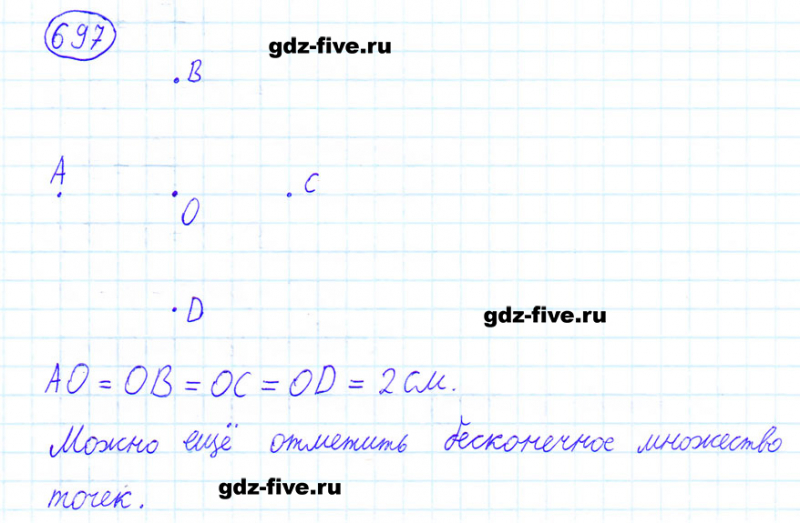 697
gdz-five.ru
B
A
C
O
D
gdz-five.ru
AO = OB = OC = OD = 2 см.
Можно ещё отметить бесконечное множество
точек.
gdz-five.ru